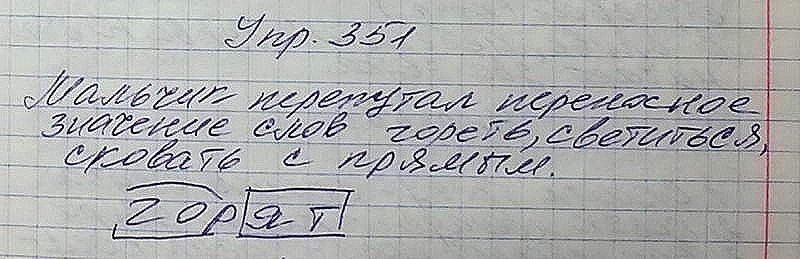 Упр. 351
Мальчик перепутал переносное
значение слов гореть, светиться,
сковать с прямым.
горят